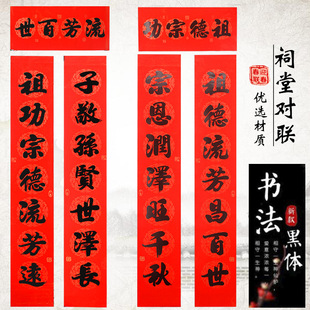 祖德宗功
流芳百世
祖德流芳昌百世
宗恩潤澤旺千秋
子敬孫賢世澤長
祖功宗德流芳遠
祠堂对联
优选材质
书法
新款
黑体